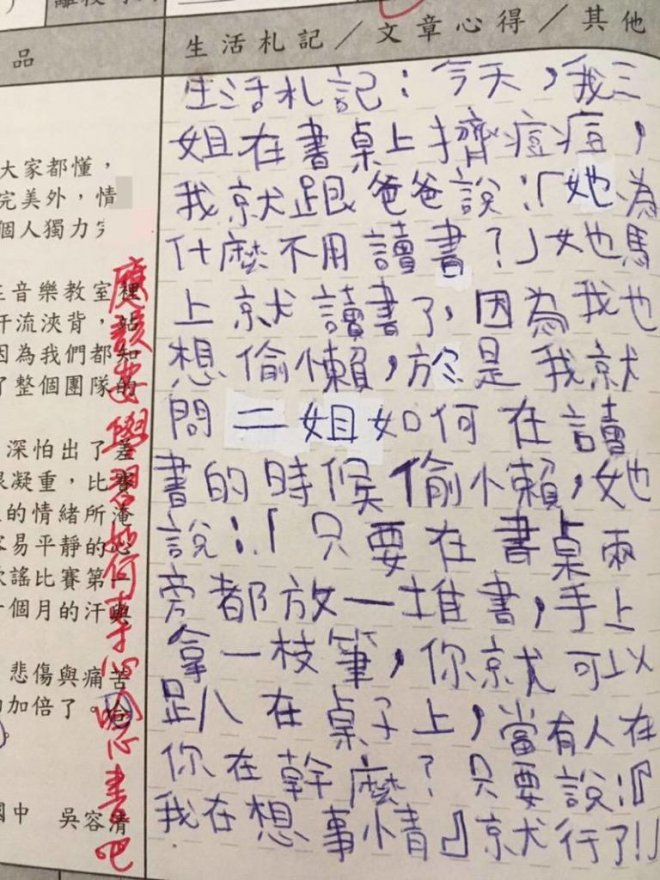 品
生活札記／文章心得／其他
大家都懂，
完美外，情
個人獨力
音樂教室裡
汗流浹背，站
因為我們都知
了整個團隊的
深怕出了差
凝重，比賽
的情緒所淹
容易平靜的心
謠比賽第一
個月的汗與
悲傷與痛苦
加倍了。
國中 吳容清
應該要學習如何專心唸書吧
生活札記：今天，我三
姐在書桌上擠痘痘，
我就跟爸爸說：「她為
什麼不用讀書？」她馬
上就讀書了，因為我也
想偷懶，於是我就
問二姐如何在讀
書的時候偷懶，她
說：「只要在書桌兩
旁都放一堆書，手上
拿一枝筆，你就可以
趴在桌子上，當有人在
你在幹麼？只要說：『
我在想事情』就行了！」